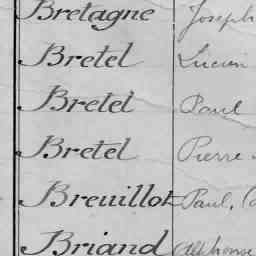 Bretagne Joseph
Bretel Lucien
Bretel Paul
Bretel Pierre
Breuillot Paul,
Briand Alphonse